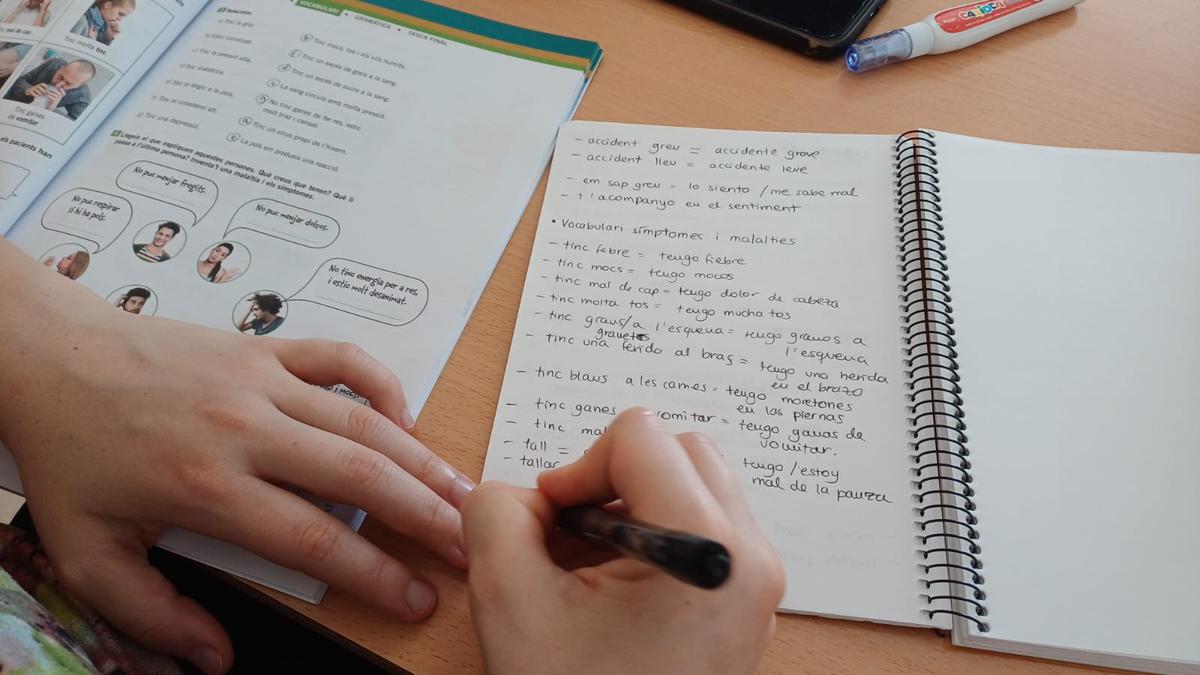 Tinc molta tos.
Tinc ganes
de vomitar
els pacients han
VOCABULARI • GRAMÀTICA • TASCA FINAL
Tinc mocs, tos i ulls humits.
Tinc un excés de greix a la sang.
Tinc un excés de sucre a la sang.
La sang circula amb molta pressió.
No tinc ganes de fer res, estic
molt trist i cansat.
Tinc un virus propi de l'hivern.
La pols em produeix una reacció.
Tinc la grip.
Tinc la pressió alta.
Sóc diabètica.
Sóc al·lèrgic a la pols.
Tinc el colesterol alt.
Tinc una depressió.
Llegeix el que expliquen aquestes persones. Què creus que tenen? Què li
passa a l'última persona? Inventa't una malaltia i els símptomes.
No puc menjar fregits.
No puc respirar
si hi ha pols.
No puc menjar dolços.
No tinc energia per a res,
i estic molt desanimat.
i mocs.
CARIOCA
- accident greu = accidente grave
- accident lleu = accidente leve
- em sap greu = lo siento / me sabe mal
- t'acompanyo en el sentiment
• Vocabulari símptomes i malalties
- tinc febre = tengo fiebre
- tinc mocs = tengo mocos
- tinc mal de cap = tengo dolor de cabeza
- tinc molta tos = tengo mucha tos
- tinc grans/a l'esquena = tengo granos a
granets l'esquena
- tinc una ferida al braç = tengo una herida
en el brazo
- tinc blaus a les cames = tengo moretones
en las piernas
- tinc ganes vomitar = tengo ganas de
vomitar.
- tinc mal tengo / estoy
mal de la panza
- tall =
- tallar